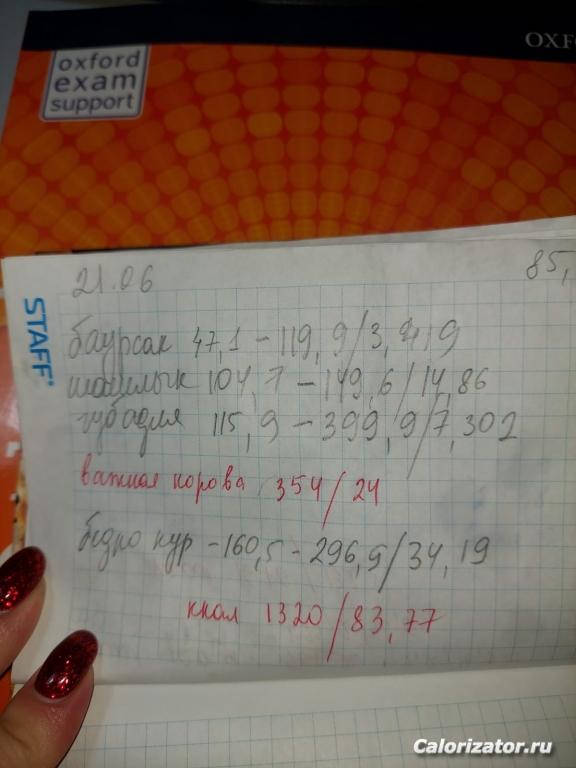 OXFO
oxford
exam
support
STAFF
21.06
85,
баурсак 47,1 - 119,9/3,419
шашлык 104,7 - 149,6/14,86
губадия 115,9 - 399,9/7,302
важная корова 354/24
бедро кур - 160,5 - 296,9/34,19
ккал 1320/83,77
Calorizator.ru